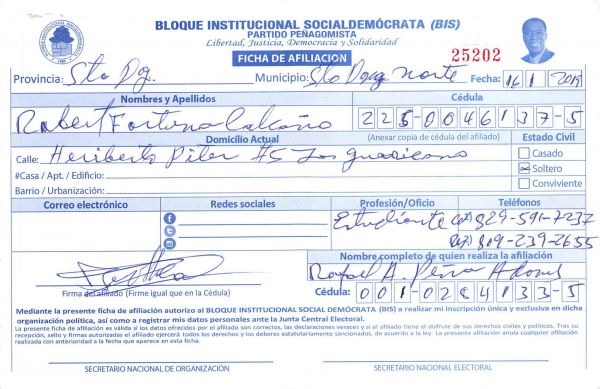 BLOQUE INSTITUCIONAL SOCIALDEMÓCRATA (BIS)
PARTIDO PEÑAGOMISTA
Libertad, Justicia, Democracia y Solidaridad
FICHA DE AFILIACIÓN
25202
Provincia: Sto Dgo. Municipio: Sto Dgo Norte Fecha: 16/1/2019
Nombres y Apellidos Cédula
Robert Fortuna 225-0046137-5
Domicilio Actual (Anexar copia de cédula del afiliado) Estado Civil
Calle: Heriberto #5 Los Casado
#Casa / Apt. / Edificio: Soltero
Barrio / Urbanización: Conviviente
Correo electrónico Redes sociales Profesión/Oficio Teléfonos
Estudiante 829-591-7237
809-239-2655
Nombre completo de quien realiza la afiliación
Rafael A. Peña
Firma del afiliado (Firme igual que en la Cédula) Cédula: 001-0284133-5
Mediante la presente ficha de afiliación autorizo al BLOQUE INSTITUCIONAL SOCIAL DEMÓCRATA (BIS) a realizar mi inscripción única y exclusiva en dicha
organización política, así como a registrar mis datos personales ante la Junta Central Electoral.
La presente ficha de afiliación es válida si los datos ofrecidos por el afiliado son correctos, las declaraciones veraces y si el afiliado tiene el disfrute de sus derechos civiles y políticos. Tras su
recepción, sello y firmas autorizadas el afiliado ejercerá todos los derechos y los deberes estatutariamente sancionados, de acuerdo a la ley. La presente afiliación anula cualquier afiliación
realizada con anterioridad a la fecha que aparece en esta ficha.
SECRETARIO NACIONAL DE ORGANIZACIÓN SECRETARIO NACIONAL ELECTORAL